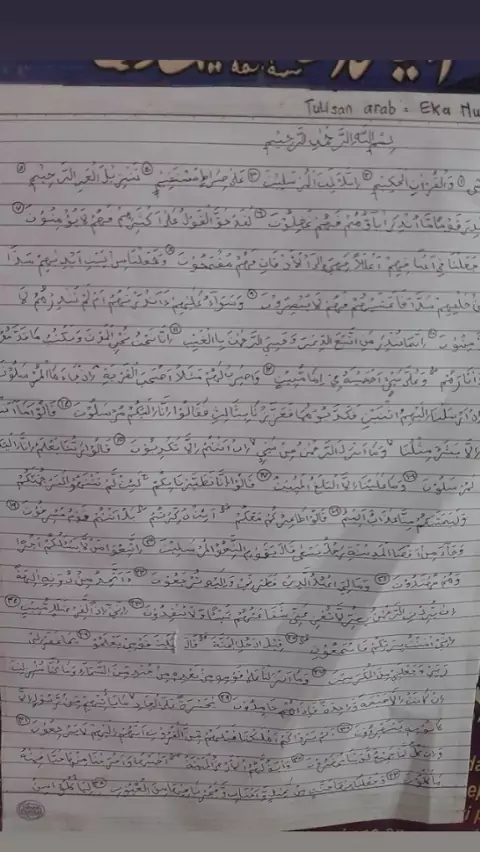 Tulisan arab = Eka Mu
بِسْمِ اللّٰهِ الرَّحْمٰنِ الرَّحِيْمِ
وَالْقُرْاٰنِ الْحَكِيْمِ ② اِنَّكَ لَمِنَ الْمُرْسَلِيْنَ ③ عَلٰى صِرَاطٍ مُّسْتَقِيْمٍ ④ تَنْزِيْلَ الْعَزِيْزِ الرَّحِيْمِ ⑤
قَوْمًا مَّآ اُنْذِرَ اٰبَاۤؤُهُمْ فَهُمْ غٰفِلُوْنَ ⑥ لَقَدْ حَقَّ الْقَوْلُ عَلٰٓى اَكْثَرِهِمْ فَهُمْ لَا يُؤْمِنُوْنَ ⑦
جَعَلْنَا فِيْٓ اَعْنَاقِهِمْ اَغْلٰلًا فَهِيَ اِلَى الْاَذْقَانِ فَهُمْ مُّقْمَحُوْنَ ⑧ وَجَعَلْنَا مِنْۢ بَيْنِ اَيْدِيْهِمْ سَدًّا
خَلْفِهِمْ سَدًّا فَاَغْشَيْنٰهُمْ فَهُمْ لَا يُبْصِرُوْنَ ⑨ وَسَوَاۤءٌ عَلَيْهِمْ ءَاَنْذَرْتَهُمْ اَمْ لَمْ تُنْذِرْهُمْ لَا
يُؤْمِنُوْنَ ⑩ اِنَّمَا تُنْذِرُ مَنِ اتَّبَعَ الذِّكْرَ وَخَشِيَ الرَّحْمٰنَ بِالْغَيْبِ ⑪ اِنَّا نَحْنُ نُحْيِ الْمَوْتٰى وَنَكْتُبُ مَا قَدَّمُوْا
وَاٰثَارَهُمْ وَكُلَّ شَيْءٍ اَحْصَيْنٰهُ فِيْٓ اِمَامٍ مُّبِيْنٍ ⑫ وَاضْرِبْ لَهُمْ مَّثَلًا اَصْحٰبَ الْقَرْيَةِ اِذْ جَاۤءَهَا الْمُرْسَلُوْنَ
اِذْ اَرْسَلْنَآ اِلَيْهِمُ اثْنَيْنِ فَكَذَّبُوْهُمَا فَعَزَّزْنَا بِثَالِثٍ فَقَالُوْٓا اِنَّآ اِلَيْكُمْ مُّرْسَلُوْنَ ⑭ قَالُوْا مَآ اَنْتُمْ
اِلَّا بَشَرٌ مِّثْلُنَا وَمَآ اَنْزَلَ الرَّحْمٰنُ مِنْ شَيْءٍ اِنْ اَنْتُمْ اِلَّا تَكْذِبُوْنَ ⑮ قَالُوْا رَبُّنَا يَعْلَمُ اِنَّآ اِلَيْكُمْ
لَمُرْسَلُوْنَ ⑯ وَمَا عَلَيْنَآ اِلَّا الْبَلٰغُ الْمُبِيْنُ ⑰ قَالُوْٓا اِنَّا تَطَيَّرْنَا بِكُمْ لَىِٕنْ لَّمْ تَنْتَهُوْا لَنَرْجُمَنَّكُمْ
وَلَيَمَسَّنَّكُمْ مِّنَّا عَذَابٌ اَلِيْمٌ ⑱ قَالُوْا طَاۤىِٕرُكُمْ مَّعَكُمْ اَىِٕنْ ذُكِّرْتُمْ بَلْ اَنْتُمْ قَوْمٌ مُّسْرِفُوْنَ ⑲
وَجَاۤءَ مِنْ اَقْصَا الْمَدِيْنَةِ رَجُلٌ يَّسْعٰى قَالَ يٰقَوْمِ اتَّبِعُوا الْمُرْسَلِيْنَ ⑳ اتَّبِعُوْا مَنْ لَّا يَسْـَٔلُكُمْ اَجْرًا
وَّهُمْ مُّهْتَدُوْنَ ㉑ وَمَا لِيَ لَآ اَعْبُدُ الَّذِيْ فَطَرَنِيْ وَاِلَيْهِ تُرْجَعُوْنَ ㉒ ءَاَتَّخِذُ مِنْ دُوْنِهٖٓ اٰلِهَةً
اِنْ يُّرِدْنِ الرَّحْمٰنُ بِضُرٍّ لَّا تُغْنِ عَنِّيْ شَفَاعَتُهُمْ شَيْـًٔا وَّلَا يُنْقِذُوْنِ ㉓ اِنِّيْٓ اِذًا لَّفِيْ ضَلٰلٍ مُّبِيْنٍ ㉔
اِنِّيْٓ اٰمَنْتُ بِرَبِّكُمْ فَاسْمَعُوْنِ ㉕ قِيْلَ ادْخُلِ الْجَنَّةَ قَالَ يٰلَيْتَ قَوْمِيْ يَعْلَمُوْنَ ㉖ بِمَا غَفَرَ لِيْ
رَبِّيْ وَجَعَلَنِيْ مِنَ الْمُكْرَمِيْنَ ㉗ وَمَآ اَنْزَلْنَا عَلٰى قَوْمِهٖ مِنْۢ بَعْدِهٖ مِنْ جُنْدٍ مِّنَ السَّمَاۤءِ وَمَا كُنَّا مُنْزِلِيْنَ
اِنْ كَانَتْ اِلَّا صَيْحَةً وَّاحِدَةً فَاِذَا هُمْ خٰمِدُوْنَ ㉙ يٰحَسْرَةً عَلَى الْعِبَادِ مَا يَأْتِيْهِمْ مِّنْ رَّسُوْلٍ اِلَّا
كَانُوْا بِهٖ يَسْتَهْزِءُوْنَ ㉚ اَلَمْ يَرَوْا كَمْ اَهْلَكْنَا قَبْلَهُمْ مِّنَ الْقُرُوْنِ اَنَّهُمْ اِلَيْهِمْ لَا يَرْجِعُوْنَ ㉛
وَاِنْ كُلٌّ لَّمَّا جَمِيْعٌ لَّدَيْنَا مُحْضَرُوْنَ ㉜ وَاٰيَةٌ لَّهُمُ الْاَرْضُ الْمَيْتَةُ اَحْيَيْنٰهَا وَاَخْرَجْنَا مِنْهَا حَبًّا فَمِنْهُ
يَأْكُلُوْنَ ㉝ وَجَعَلْنَا فِيْهَا جَنّٰتٍ مِّنْ نَّخِيْلٍ وَّاَعْنَابٍ وَّفَجَّرْنَا فِيْهَا مِنَ الْعُيُوْنِ ㉞ لِيَأْكُلُوْا مِنْ